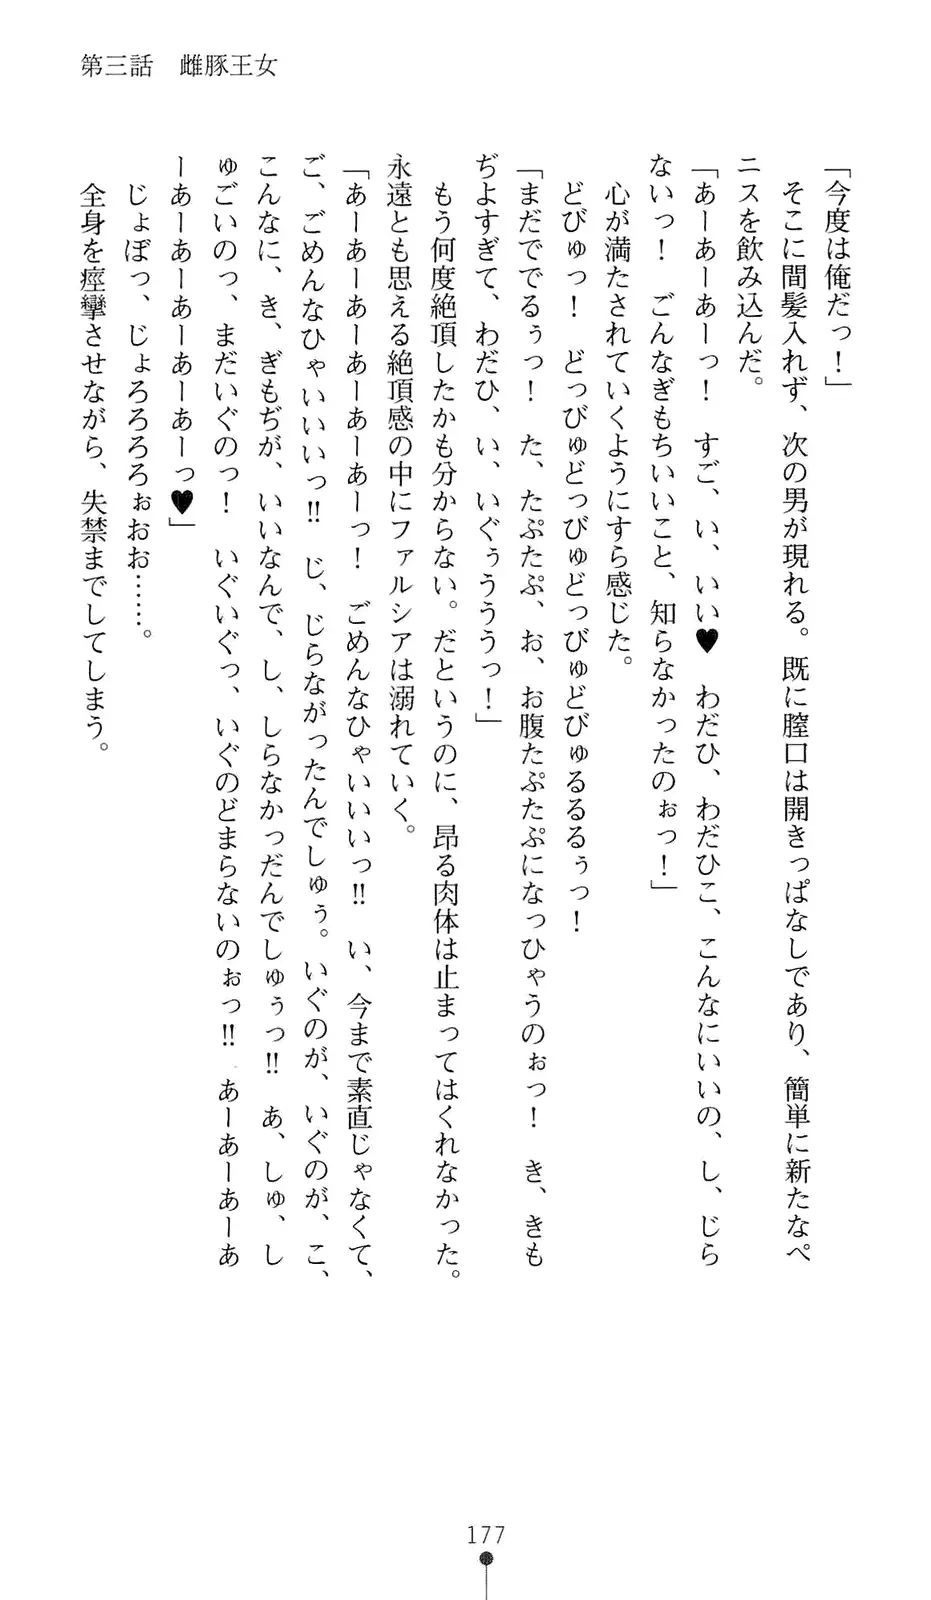 第三話　雌豚王女
「今度は俺だっ！」
　そこに間髪入れず、次の男が現れる。既に膣口は開きっぱなしであり、簡単に新たなペ
ニスを飲み込んだ。
「あーあーあーっ！　すご、い、いい♥　わだひ、わだひこ、こんなにいいの、し、じら
ないっ！　ごんなぎもちいいこと、知らなかったのぉっ！」
　心が満たされていくようにすら感じた。
　どびゅっ！　どっびゅどっびゅどっびゅどびゅるるるぅっ！
「まだでてるぅっ！　た、たぷたぷ、お、お腹たぷたぷになっひゃうのぉっ！　き、きも
ぢよすぎて、わだひ、い、いぐぅうううっ！」
　もう何度絶頂したかも分からない。だというのに、昂る肉体は止まってはくれなかった。
永遠とも思える絶頂感の中にファルシアは溺れていく。
「あーあーあーあーあーあーっ！　ごめんなひゃいいいっ!!　い、今まで素直じゃなくて、
ご、ごめんなひゃいいいっ!!　じ、じらながったんでしゅぅ。いぐのが、いぐのが、こ、
こんなに、き、ぎもぢが、いいなんで、し、しらなかっだんでしゅぅっ!!　あ、しゅ、し
ゅごいのっ、まだいぐのっ！　いぐいぐっ、いぐのどまらないのぉっ!!　あーあーあーあ
ーあーあーあーあーあーっ♥」
　じょぼっ、じょろろろぉおお……。
　全身を痙攣させながら、失禁までしてしまう。
177